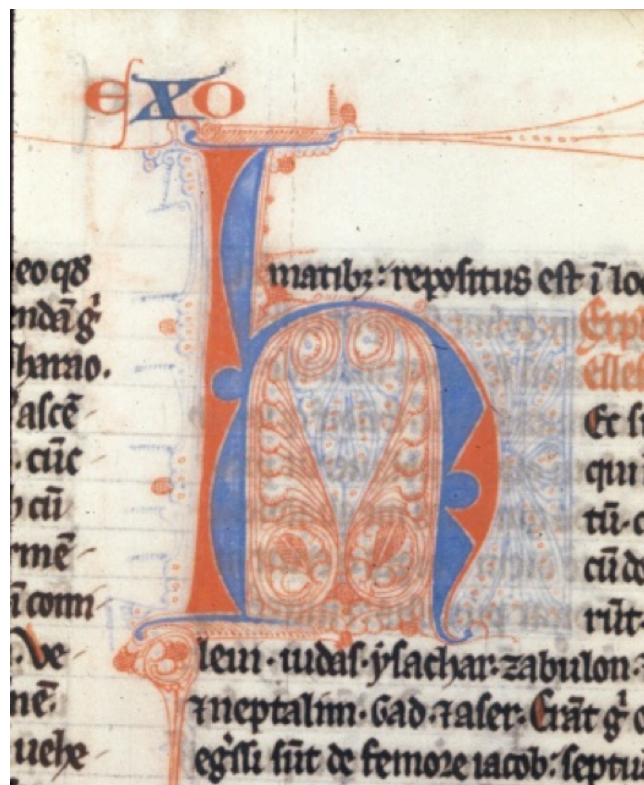 exo
eo qđ
endā g̍
harao.
ascē
. cūc
cū
rmē
ī conn
. Ve
nē.
uehe
h
matibꝫ: repositus est ī loc
Expl
Elles
Et si
qui
tū. c
cū do
rūt.
leui. iudas. ysachar. zabulon.
⁊ neptalim. Gad. ⁊ aser. Erāt g̍ o
egssi sūt de femore iacob: septu